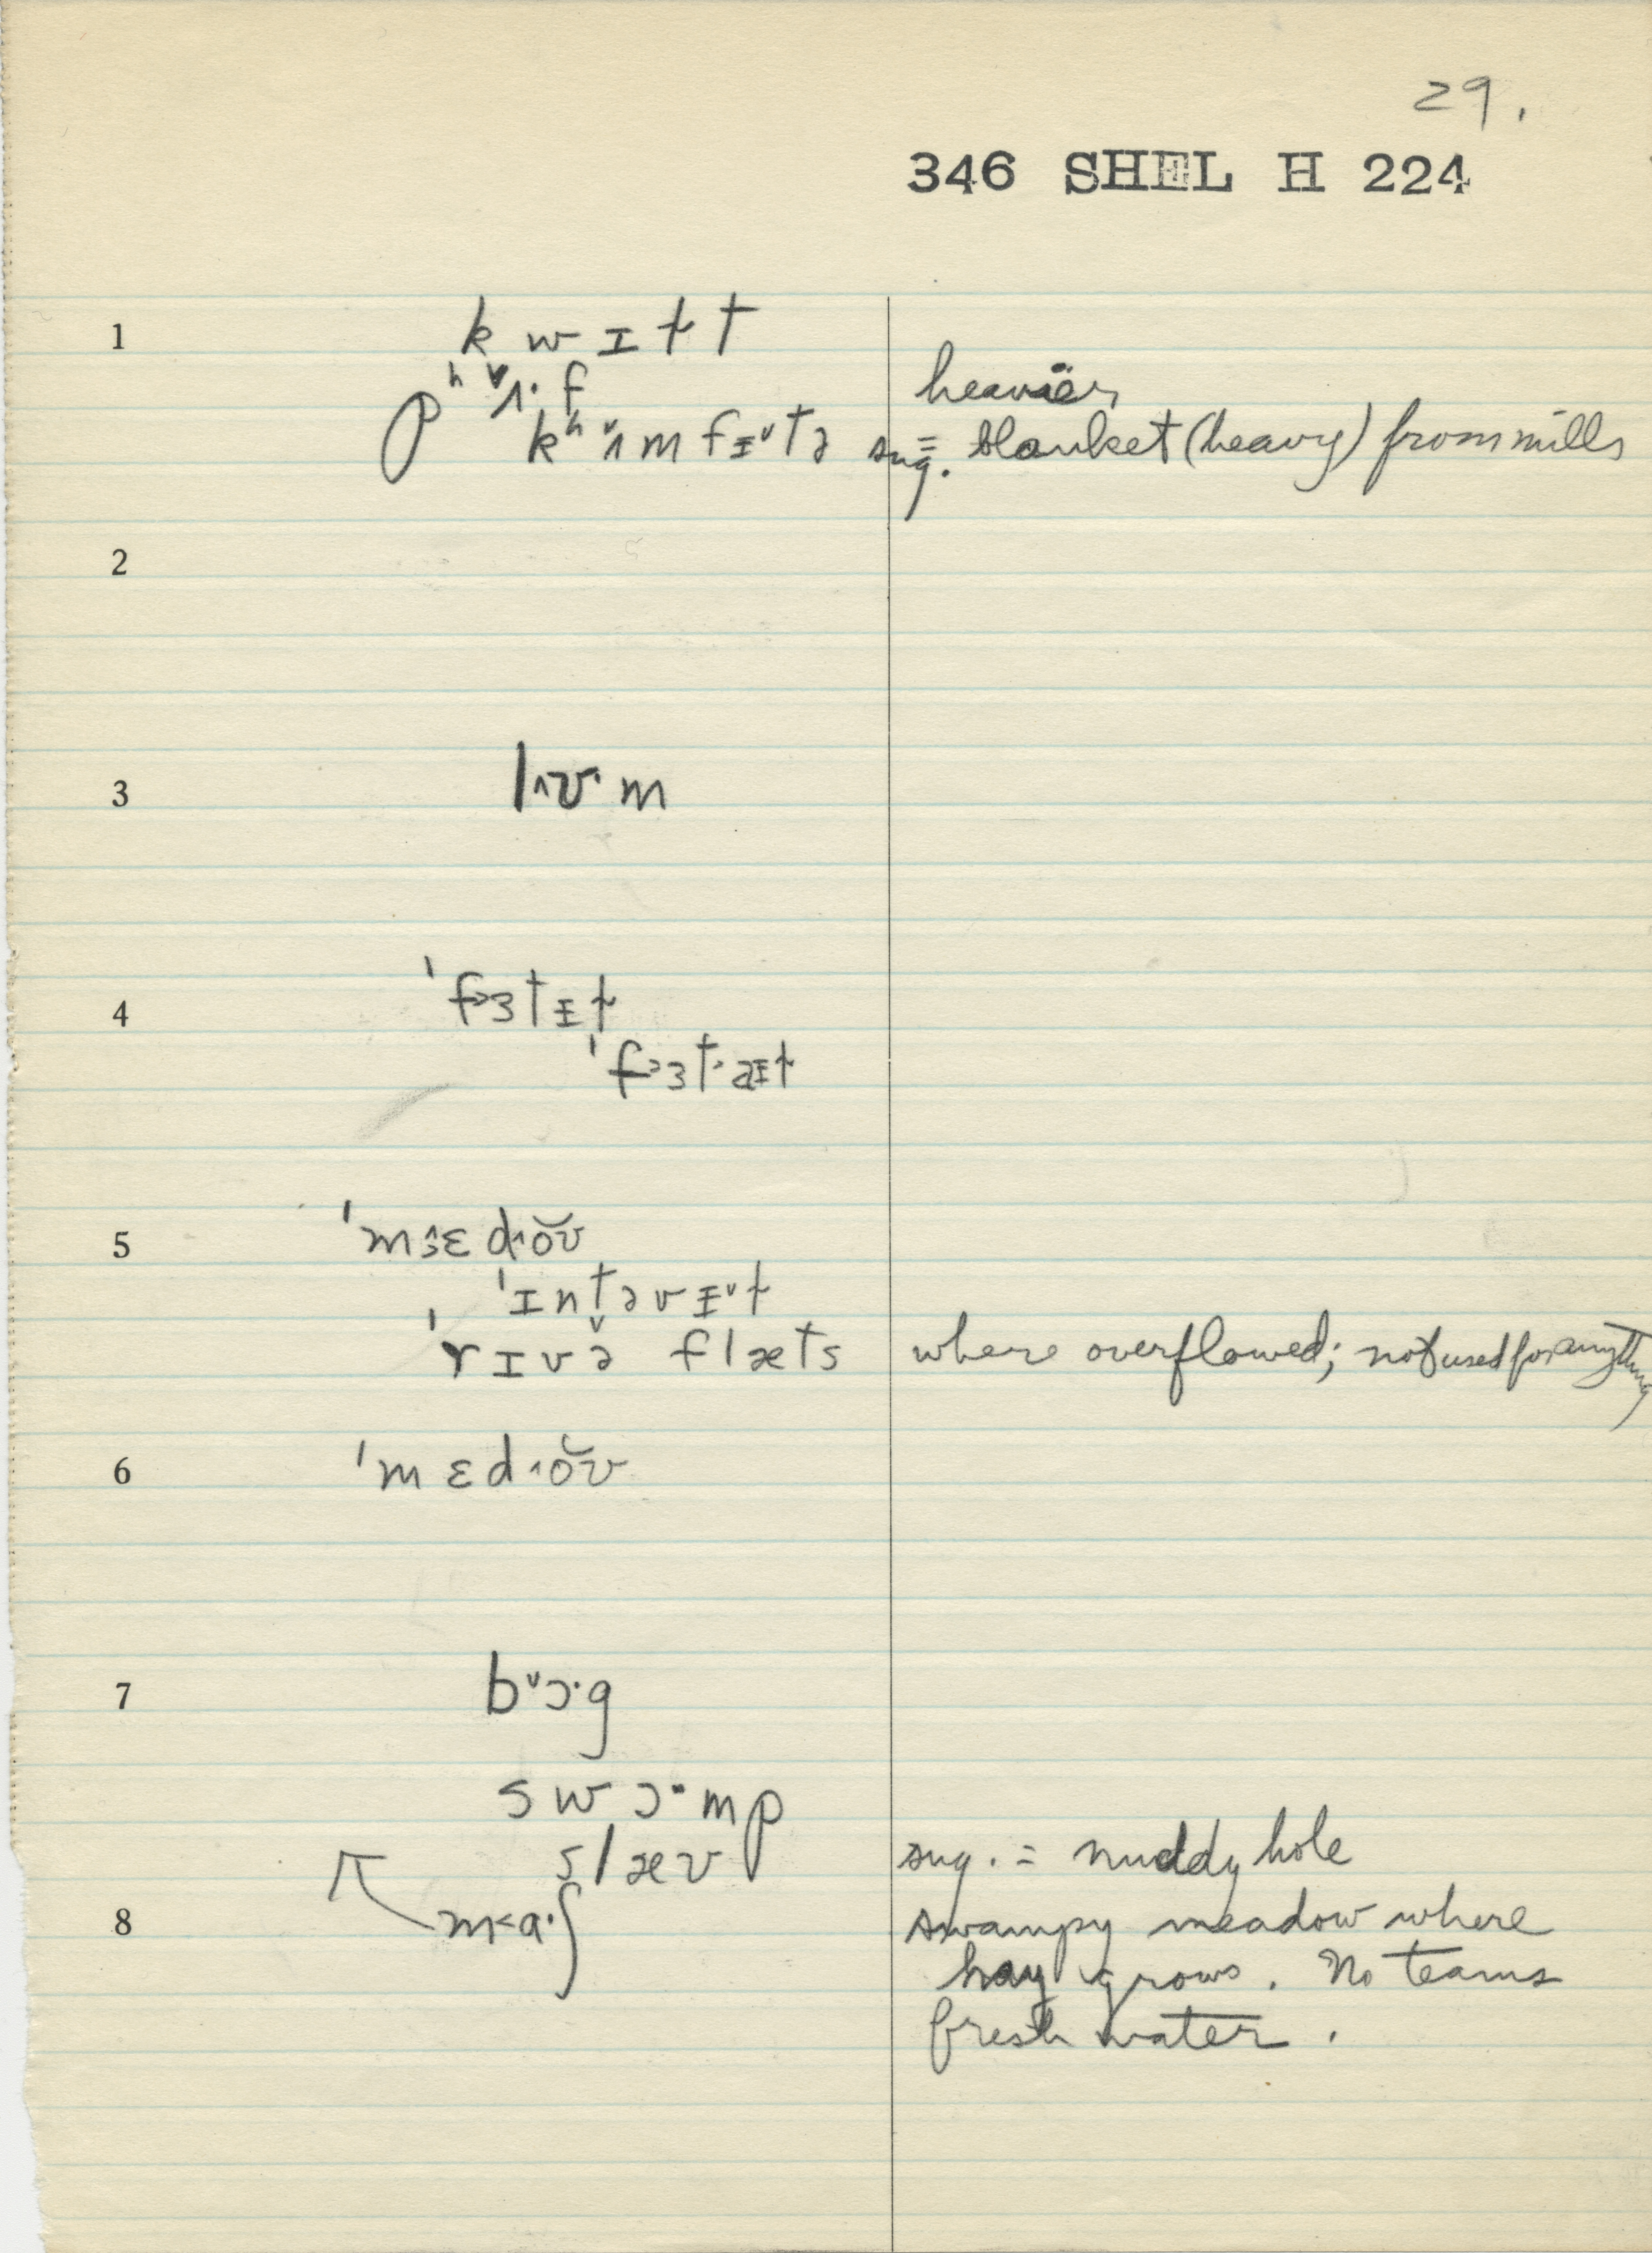 29.
346 SHEL H 224
1 k w ɪ ɫ t
pʰ ˅ʌ· f heavier
kʰ ˅ʌ m f ɪ ˅ t ə sug. = blanket (heavy) from mills
2
3 l ˄ʊ· m
4 ˈf ɜ t ɪ ɫ
ˈf ɜ t· aɪ ɫ
5 ˈm ɛ d ˄ŏʊ
ˈɪ n t ə v ɪ ˅ ɫ
ˈr ɪ v ə f l æ t s where overflowed; not used for anything
6 ˈm ɛ d ˄ŏʊ
7 b ˅ɔ· g
s w ɔ· m p
s l æ v sug. = muddy hole
8 m < a· ʃ swampy meadow where
hay grows. No teams
fresh water.